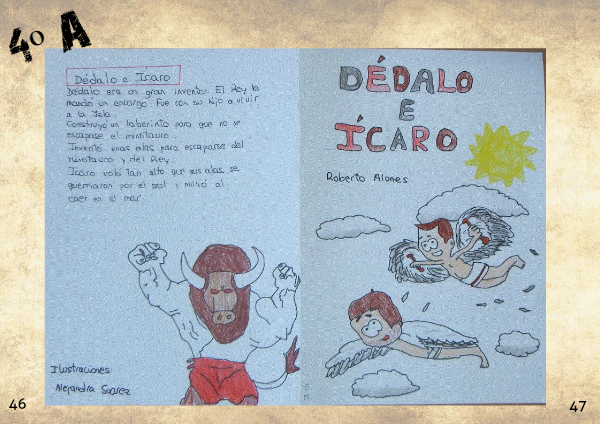 4º A
Dédalo e Ícaro
Dédalo era un gran inventor. El Rey le
mandó un encargo. Fue con su hijo a vivir
a la Isla.
Construyó un laberinto para que no se
escapase el minotauro.
Inventó unas alas para escaparse del
minotauro y del Rey.
Ícaro voló tan alto que sus alas se
quemaron por el sol y murió al
caer en el mar.
Ilustraciones:
Alejandra Suarez
46
DÉDALO
E
ÍCARO
Roberto Aiones
47